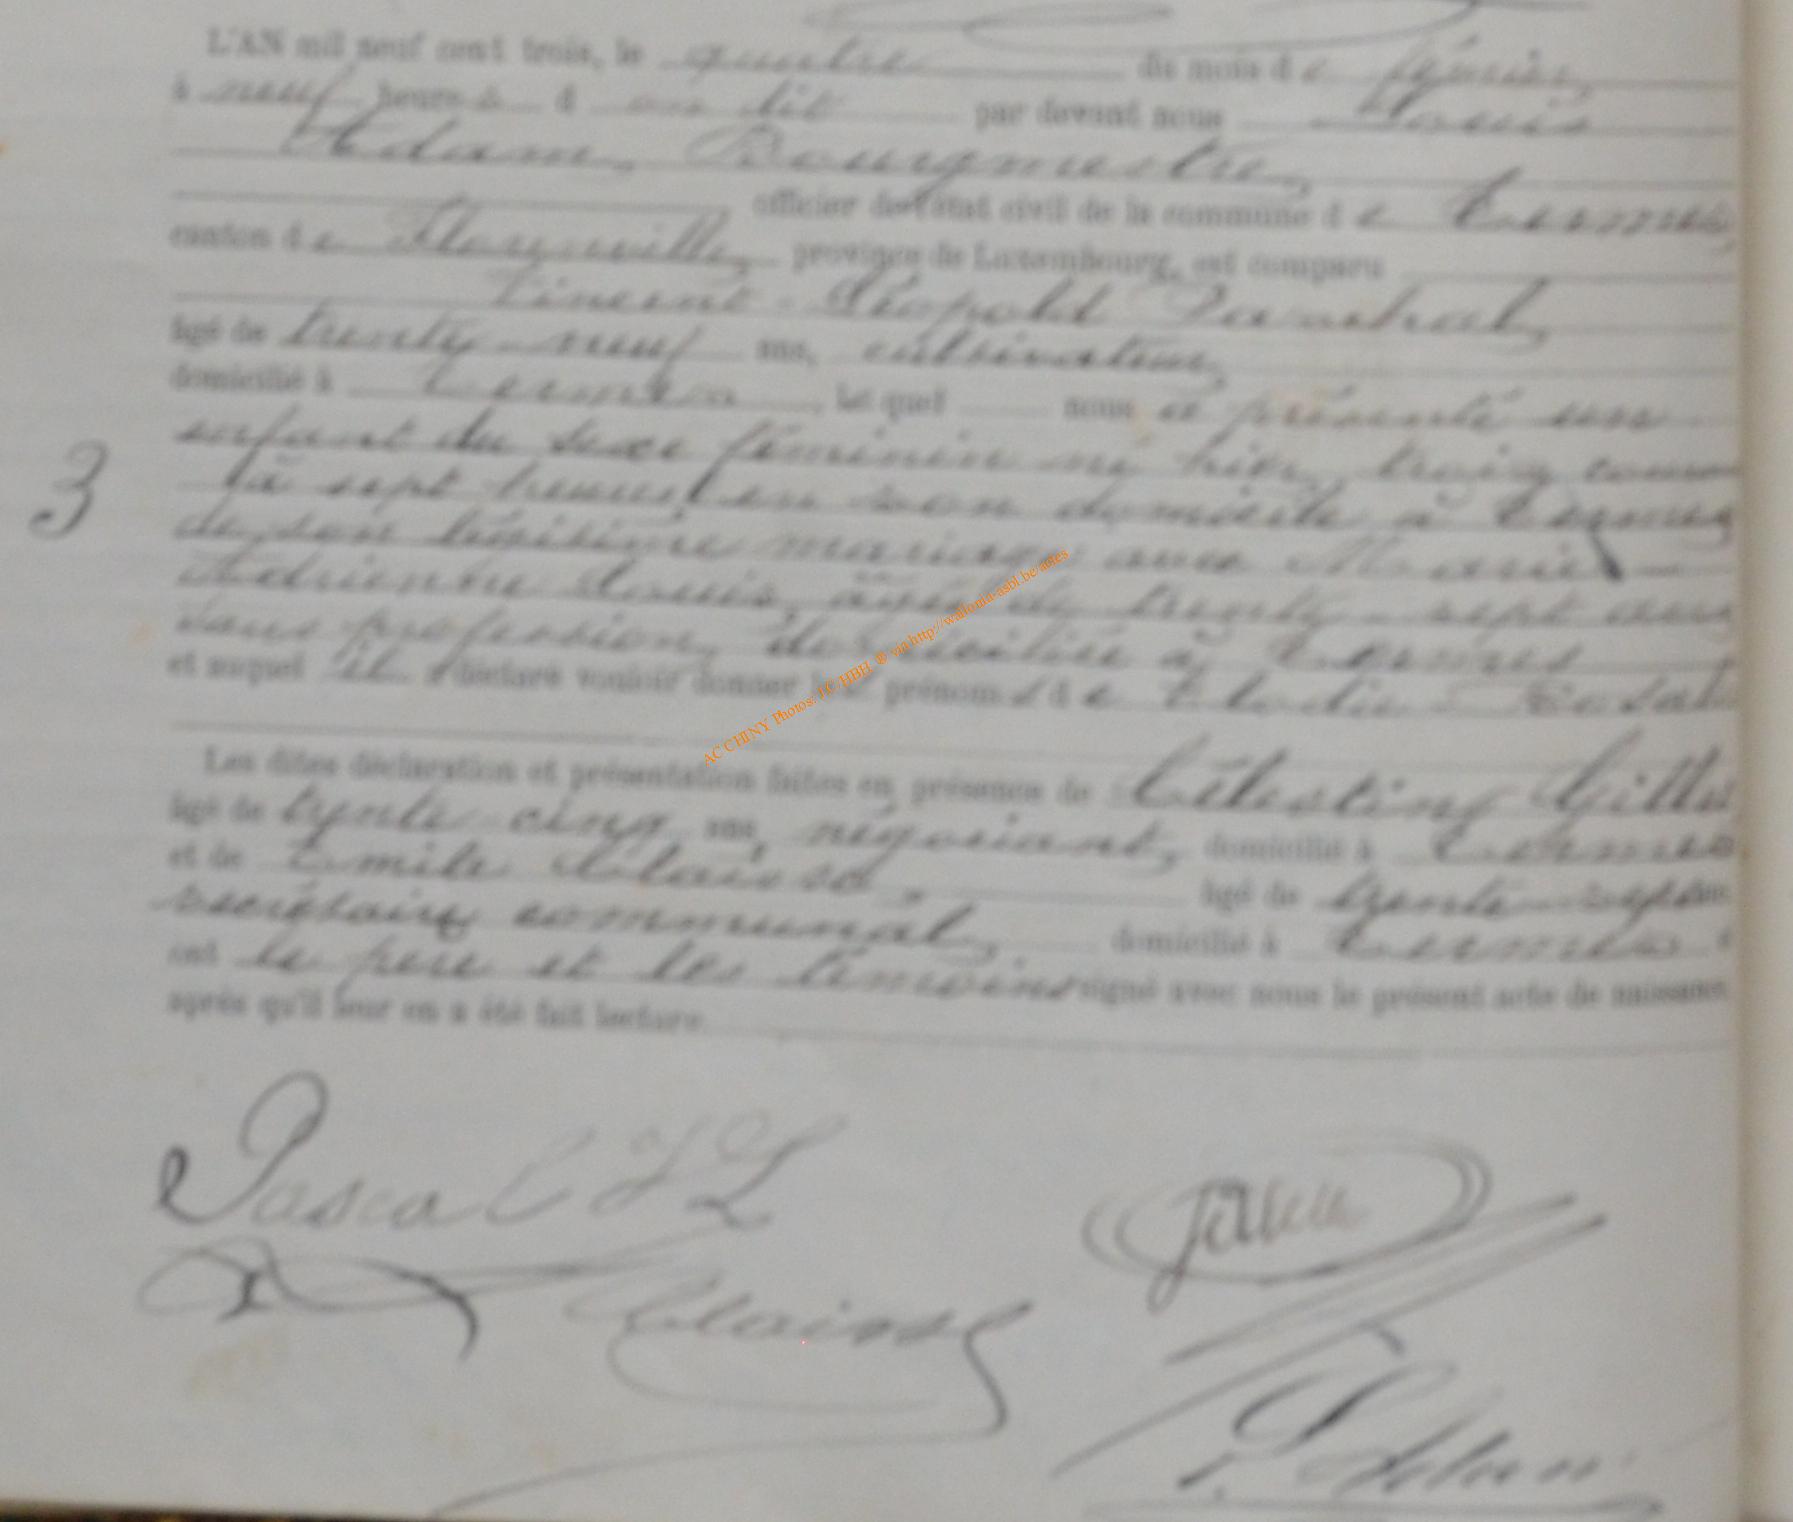 L'AN mil neuf cent trois, le quatre du mois de février,
à neuf heures d u dit par devant nous Louis
Adam, Bourgmestre,
officier de l'état civil de la commune de Termes,
canton de Florenville, province de Luxembourg, est comparu
Vincent Léopold Paschal,
âgé de trente-neuf ans, cultivateur,
domicilié à Termes, lequel nous a présenté un
enfant du sexe féminin né hier, trois courant
à sept heures en son domicile à Termes
de son légitime mariage avec Marie
Adrienne Louis, âgée de trente sept ans
sans profession, domiciliée à Termes
et auquel il a déclaré vouloir donner les prénoms de Elodie
Les dites déclaration et présentation faites en présence de Célestin Gilles
âgé de trente cinq ans, négociant, domicilié à Termes
et de Emile Claisse, âgé de trente-sept ans
secrétaire communal, domicilié à Termes
ont le père et les témoins signé avec nous le présent acte de naissance
après qu'il leur en a été fait lecture.
3
ACCHINY Photos: J.C HBH. ® via http://wallonia-asbl.be/actes
Pascal
Claisse
L. Adam